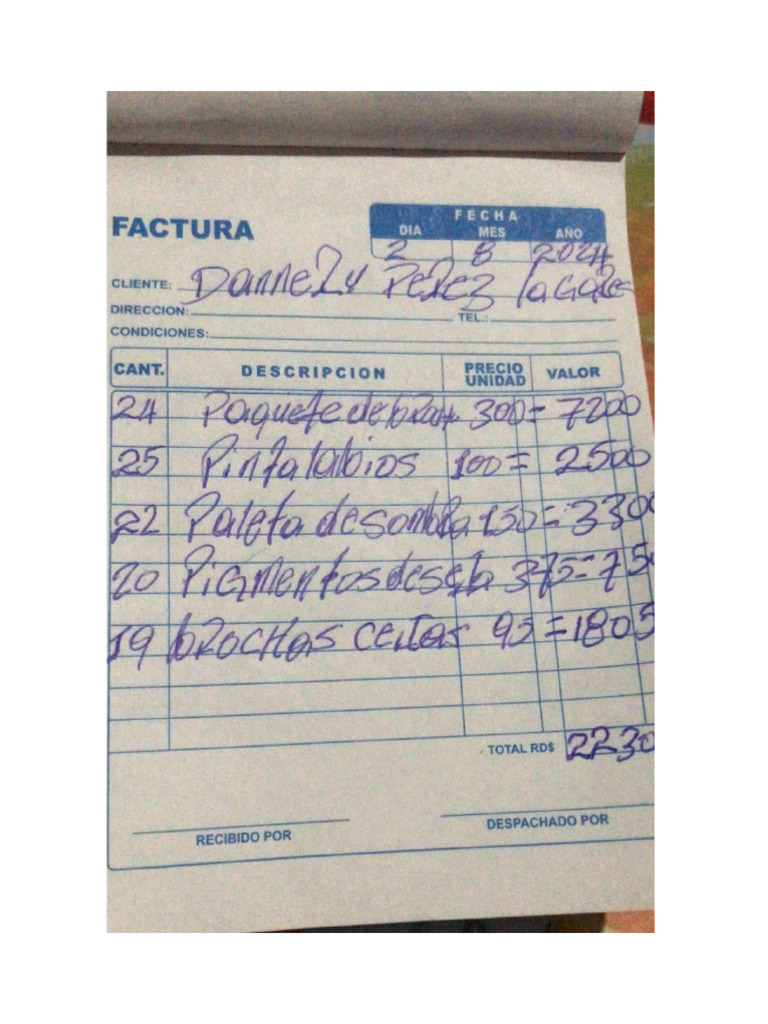 FACTURA
FECHA
DIA MES AÑO
2 8 2024
CLIENTE: Dannely Perez
DIRECCION: TEL.:
CONDICIONES:
CANT. DESCRIPCION PRECIO UNIDAD VALOR
24 Paquete de 300= 7200
25 Pintalabios 100= 2500
22 Paleta de sombra 150=3300
20 Pigmentos 375=750
19 brochas 95=1805
TOTAL RD$ 2230
RECIBIDO POR
DESPACHADO POR